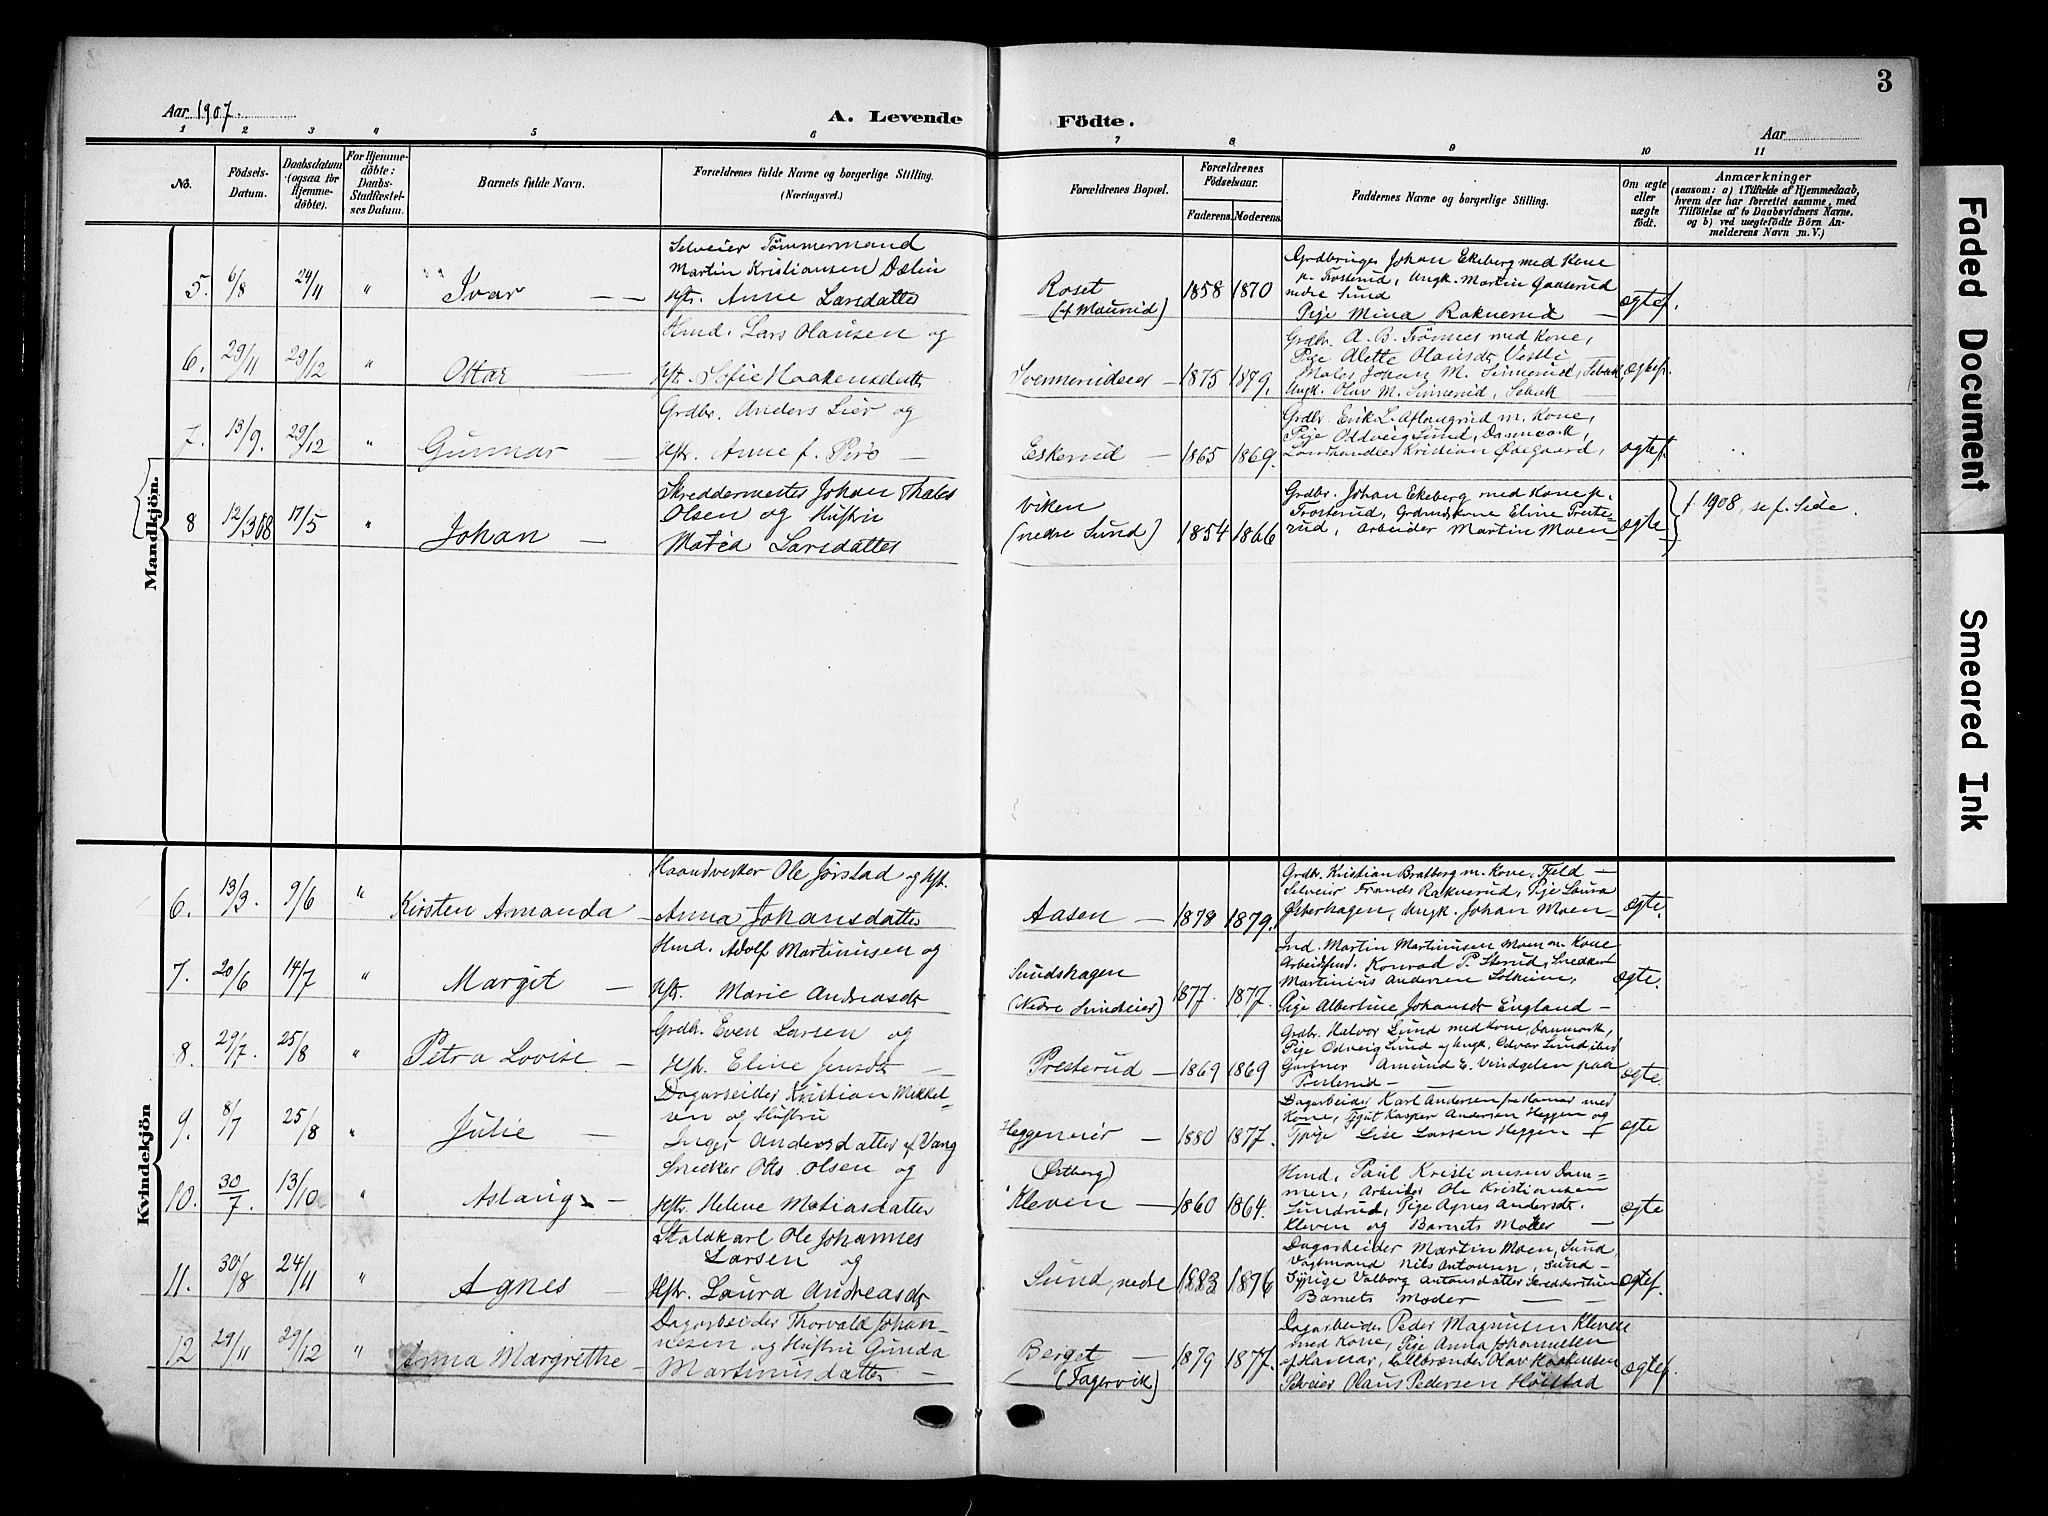 3
Aar 1907.
A. Levende Födte.
Aar
1 2 3 4 5 6 7 8 9 10 11
No.
Födsels-Datum.
Daabsdatum (ogsaa for Hjemmedöbte).
For Hjemmedöbte: Daabs-Stadfæstelses Datum.
Barnets fulde Navn.
Forældrenes fulde Navne og borgerlige Stilling.
(Næringsvei.)
Forældrenes Bopæl.
Forældrenes Födselsaar.
Faderens. Moderens.
Faddernes Navne og borgerlige Stilling.
Om ægte eller uægte födt.
Anmærkninger
(saasom: a) i Tilfælde af Hjemmedaab,
hvem der har forrettet samme, med
Tilföielse af to Daabsvidners Navne,
og b) ved uægtefödte Börn Anmelderens Navn m. V.)
Mandkjön.
5. 6/8 24/11 " Ivar
Selveier Tömmermand
Martin Kristiansen Dælin
Hstr. Anne Larsdatter
Roset
1858 1870
Grdbruger Johan Ekeberg med Kone
p. Trosterud, Ungk. Martin Gaaserud
nedre Sund
Pige Mina Raknerud
ægtef.
6. 29/11 29/12 " Ottar
Hmd. Lars Olausen og
Hstr. Sofie Haakensdatter
1875 1879.
Grdbr. A. B. Trönnes med Kone,
Pige Alette Olausdr Vestli
Maler Johan M. Linnerud,
Ungk. Olav M. Linnerud,
ægtef.
7. 13/9. 29/12 " Gunnar
Grdbr. Anders Lier og
Hstr. Anne f.
Eskerud
1865 1869.
Grdbr. Erik L. m. Kone,
Pige Oddveig Sund, Danmark,
Landhandler Kristian Ödegaard,
ægtef.
8 12/3.08 17/5 " Johan
Skreddermester Johan Thales
Olsen og Hustru
Matea Larsdatter
Viken
(nedre Sund)
1854 1866
Grdbr. Johan Ekeberg med Kone p.
Trosterud, Grdmdskone Eline Preste-
rud, Arbeider Martin Moen
ægte
f. 1908, se f. Side.
Kvindekjön
6. 13/3. 9/6 " Kirsten Amanda
Haandverker Ole Jörstad og Hst.
Anna Johansdatter
Aasen
1878 1879.
Grdbr. Kristian Bratberg m. Kone, Fjeld
Selveier Frands Raknerud, Pige Laura
Österhagen, Ungk. Johan Moen
ægte.
7. 20/6 14/7 " Margit
Hmd. Adolf Martinusen og
Hstr. Marie Andreasdr
Sundshagen
(Nedre Sundseier)
1877. 1877.
Ind. Martin Martinusen Moen m. Kone
Arbeidsmd. Konrad P. Sterud, Snedker
Martinius Andersen Solheim,
Pige Albertine Johansdr England
ægte.
8. 29/7. 25/8 " Petra Lovise
Grdb. Even Larsen og
Hstr. Eline Jensdr
Presterud
1869 1869
Grdbr. Halvor Lund med Kone, Danmark,
Pige Odveig Sund og Ungk. Odvar Sund ibid
Gartner Amund E. Vindgelen paa
Presterud
ægte.
9. 8/7 25/8 " Julie
Dagarbeider Kristian Mikkel-
sen og Hustru
Inger Andersdatter af Vang
Heggeneier
1880 1877.
Dagarbeider Karl Andersen fra Hamar med
Kone, Tjgut Kasper Andersen Heggen og
Tpige Lise Larsen Heggen
ægte
10. 30/7. 13/10 " Aslaug
Snedker Otto Olsen og
Hstr. Helene Matiasdatter
(Östberg)
Kleven
1860 1864.
Hmd. Paul Kristiansen Dam-
men, Arbeider Ole Kristiansen
Sundrud, Pige Agnes Andersdr.
Kleven og Barnets Moder
ægte
11. 30/8 24/11 " Agnes
Staldkarl Ole Johannes
Larsen og
Hstr. Laura Andreasdr
Sund, nedre
1883 1876
Dagarbeider Martin Moen, Sund
Vogtmand Nils Antonsen, Sund
Sypige Valborg Antonsdatter Skredderstuen
Barnets Moder
ægtef.
12 29/11 29/12 " Anna Margrethe
Dagarbeider Thorvald Johan-
nesen og Hustru Gunda
Martinusdatter
Berget
(Fagervik)
1879 1877.
Dagarbeider Peder Magnusen Kleven
med Kone, Pige Anna Johannesen
af Hamar, Olav Haakensen
Selveier Olaus Pedersen Hölstad
ægtef.
Faded Document
Smeared Ink